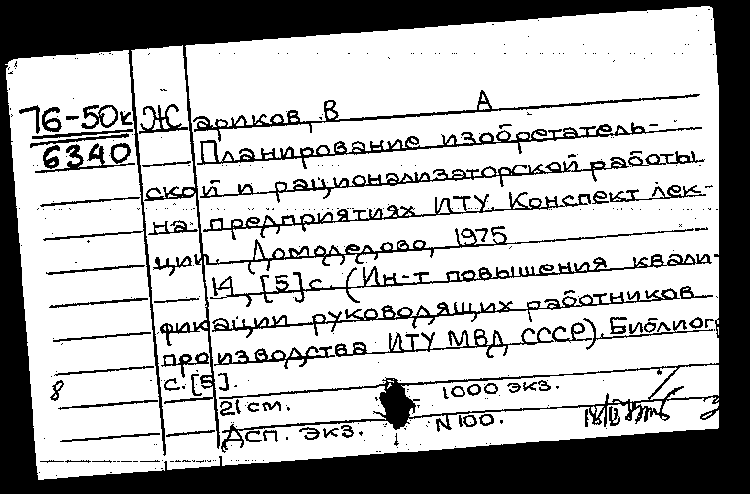 76-50к Жариков, В А
6340 Планирование изобретатель-
ской и рационализаторской работы
на предприятиях ИТУ. Конспект лек-
ции. Домодедово, 1975
14, [5] с. (Ин-т повышения квали-
фикации руководящих работников
производства ИТУ МВД СССР). Библиогр
8 с. [5].
21 см. 1000 экз.
ДСП. экз. N 100.